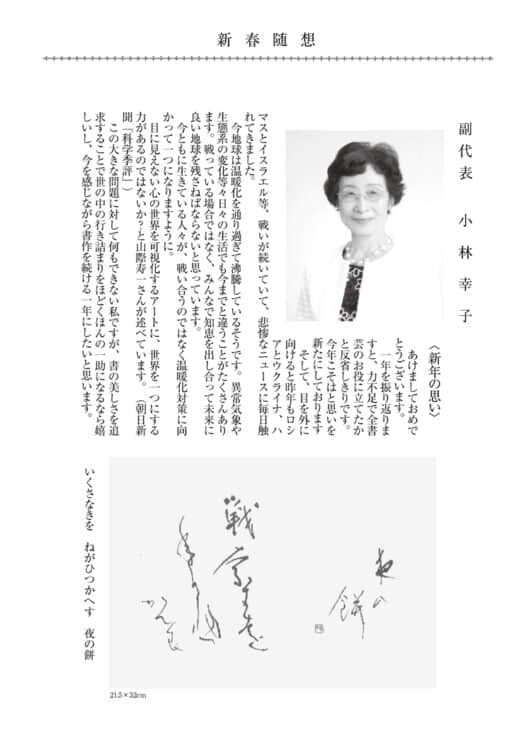 新春随想
副代表　小林幸子
〈新年の思い〉
あけましておめで
とうございます。
一年を振り返りま
すと、力不足で全書
芸のお役に立てたか
と反省しきりです。
今年こそはと思いを
新たにしております
そして、目を外に
向けると昨年もロシ
アとウクライナ、ハ
マスとイスラエル等、戦いが続いていて、悲惨なニュースに毎日触
れてきました。
今地球は温暖化を通り過ぎて沸騰しているそうです。異常気象や
生態系の変化等々日々の生活でも今までと違うことがたくさんあり
ます。戦っている場合ではなく、みんなで知恵を出し合って未来に
良い地球を残さねばならないと思っています。
今ともに生きている人々が、戦い合うのではなく温暖化対策に向
かって一つになりますように。
目に見えない心の世界を可視化するアートに、世界を一つにする
力があるのではないか？と山際寿一さんが述べています。（朝日新
聞「科学季評」）
この大きな問題に対して何もできない私ですが、書の美しさを追
求することで世の中の行き詰まりをほどくほんの一助になるなら嬉
しいし、今を感じながら書作を続ける一年にしたいと思います。
夜の
餅
いくさなきを　ねがひつかへす　夜の餅
21.5×32cm